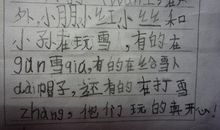 外,小朋小红小丝丝和
小孙在玩雪,有的在
gǔn雪qiú,有的在给雪人
dài帽子,还有的在打雪
zhàng,他们玩的真开心!